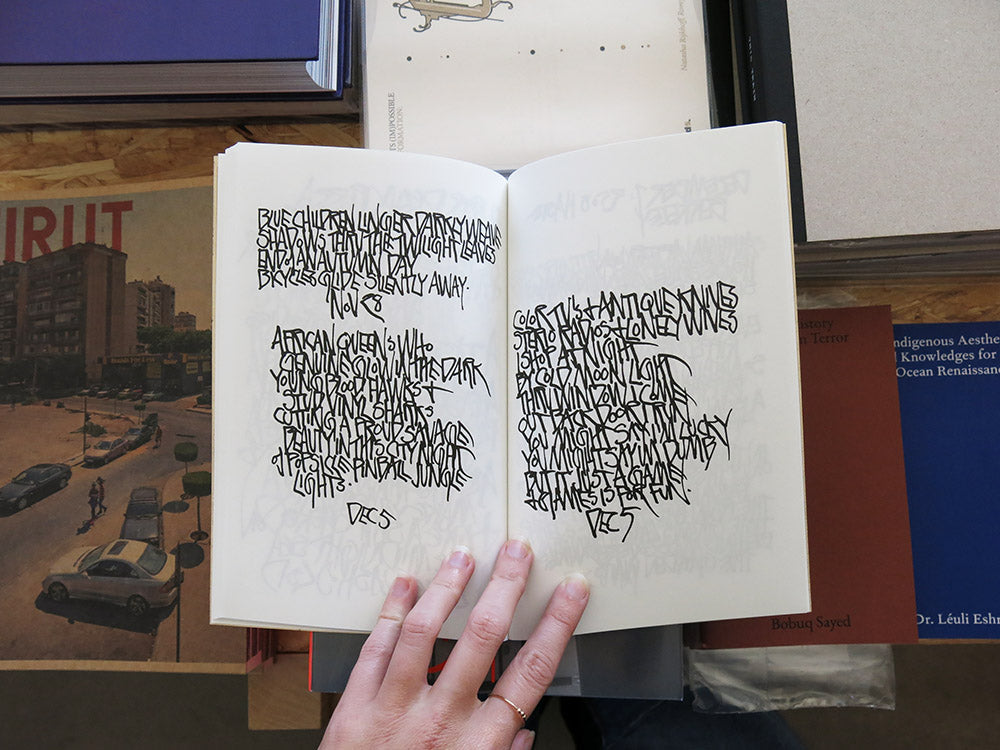 IRUT
TS (IM)POSSIBLE
FORMATION.
BLUE CHILDREN LINGER DARKLY WEAVE
SHADOWS THRU THE TWILIGHT LEAVES
END AN AUTUMN DAY
BICYCLES GLIDE SILENTLY AWAY.
NOV 8
AFRICAN QUEEN'S WHO
GENUINE GLOW IN THE DARK
YOUNG BLOOD HAWKS +
STRING VINYL SHARKS
BEAUTY IN THE CITY NIGHT
A POPSICLE PINBALL JUNGLE
LIGHTS.
DEC 5
COLOR TV'S + ANTIQUE KNIVES
STEREO RADIOS + LONELY WIVES
I SHOP AT NIGHT
BY COLD MOON LIGHT
THRU WINDOW I COME
OUT BACK DOOR I RUN
YOU MIGHT SAY I'M LUCKY
YOU MIGHT SAY I'M DUMB
BUT IT'S JUST A GAME
& GAMES IS FOR FUN.
DEC 5
story
n Terror
Bobuq Sayed
ndigenous Aesthe
Knowledges for
Ocean Renaissanc
Dr. Léuli Eshr